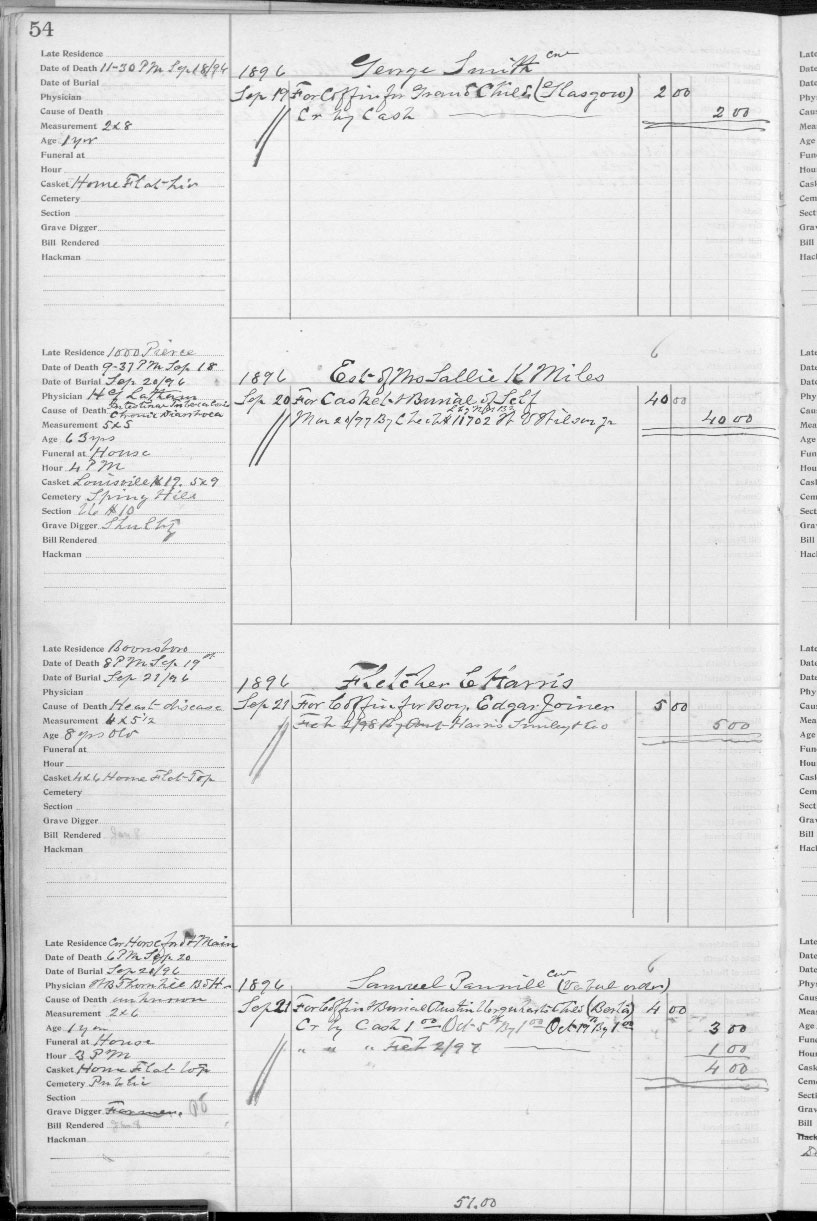 54
Late Residence
Date of Death 11-30 PM Sep 18/96
Date of Burial
Physician
Cause of Death
Measurement 2x8
Age 1 yr
Funeral at
Hour
Casket Home Flat-
Cemetery
Section
Grave Digger
Bill Rendered
Hackman
1896 George Smith
Sep 19 For Coffin for Grand Child (Glasgow) 2 00
Cr by Cash 2 00
Late Residence 1000 Pierce
Date of Death 9-37 PM Sep 18
Date of Burial Sep 20/96
Physician Latham
Cause of Death Intestinal Tuberculosis
Chronic Diarrhoea
Measurement 5x5
Age 63 yrs
Funeral at House
Hour 4 PM
Casket Louisville 5x9
Cemetery Spring Hill
Section
Grave Digger
Bill Rendered
Hackman
6
1896 Est of Mrs Sallie K Miles
Sep 20 For Casket & Burial of Self 40 00
Mar 20/97 By Check 11702 Wilson jr 40 00
Late Residence Boonsboro
Date of Death 8 PM Sep 19th
Date of Burial Sep 21/96
Physician
Cause of Death Heart disease
Measurement
Age 8 yrs old
Funeral at
Hour
Casket 4x6 Home Flat-Top
Cemetery
Section
Grave Digger
Bill Rendered Jan 8
Hackman
1896 Fletcher C Harris
Sep 21 For Coffin for Boy. Edgar Joiner 5 00
Feb 2/98 By Harris & Co 5 00
Late Residence Cor Horseford & Main
Date of Death 6 PM Sep 20
Date of Burial Sep 20/96
Physician Thornhill
Cause of Death unknown
Measurement 2x6
Age 1 year
Funeral at House
Hour 3 PM
Casket Home Flat-top
Cemetery Public
Section
Grave Digger
Bill Rendered Jan 8
Hackman
6
1896 Samuel Pannill (Verbal order)
Sep 21 For Coffin & Burial Austin Child 4 00
Cr by Cash 1 00 Oct 5th By 1 00 Oct 19th By 1 00 3 00
" " " Feb 2/97 1 00
4 00
51.00